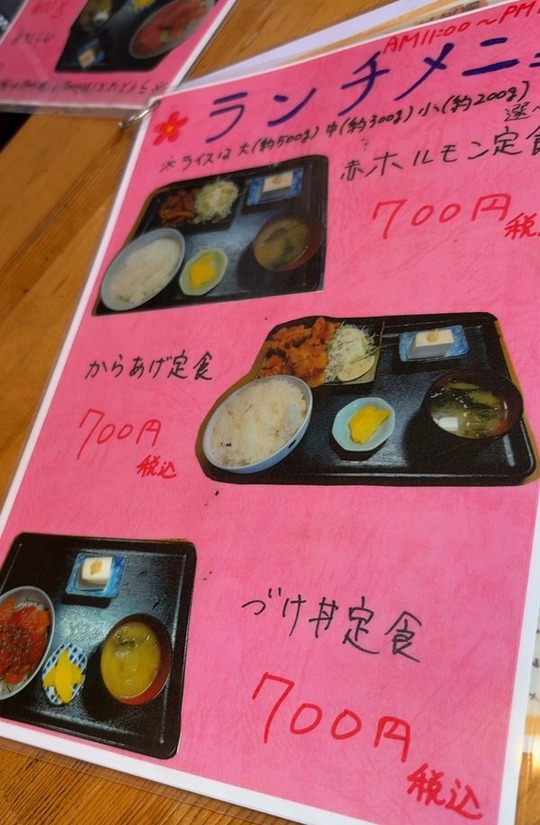 AM11:00～PM
ランチメニュ
※ライスは大(約500g)中(約300g)小(約200g)
選べ
赤ホルモン定食
700円
税
からあげ定食
700円
税込
づけ丼定食
700円
税込